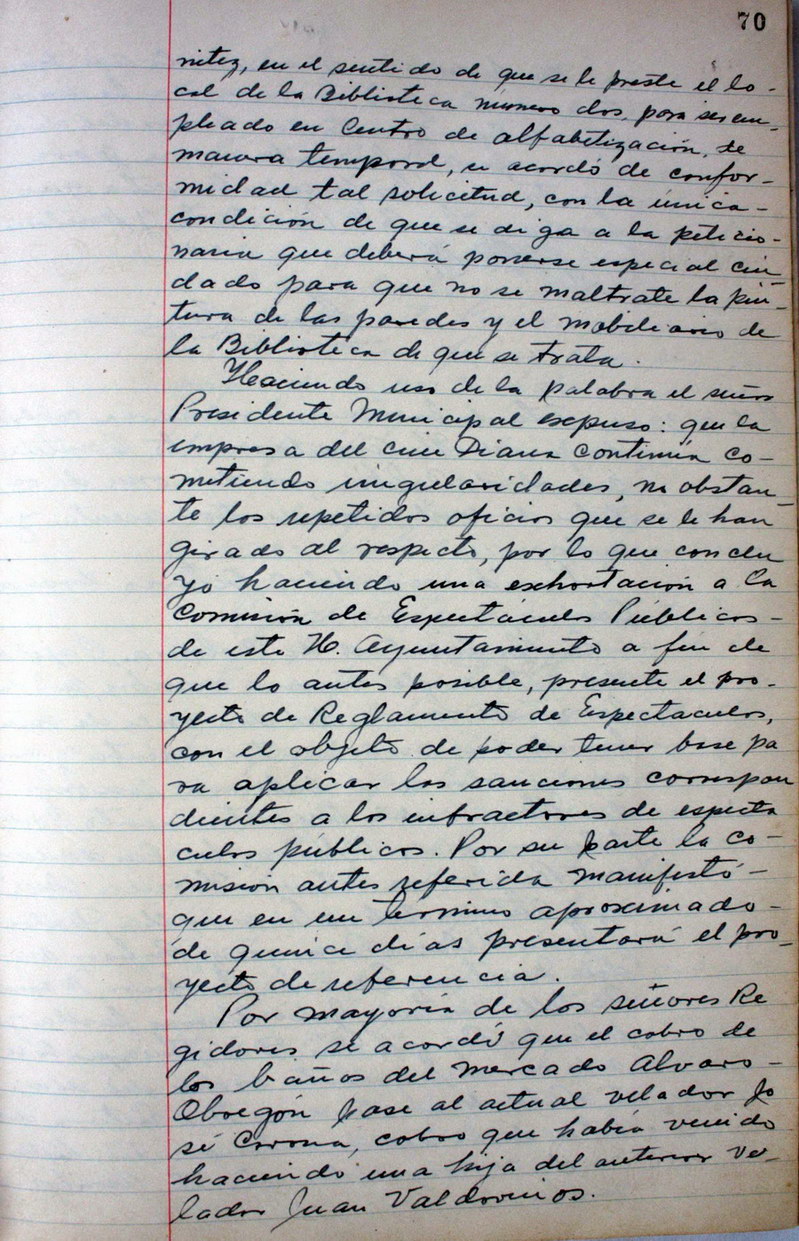 70
nitez, en el sentido de que se le preste el lo-
cal de la Biblioteca número dos, para ser em-
pleado en Centro de alfabetización, de
manera temporal, se acordó de confor-
midad tal solicitud, con la única-
condición de que se diga a la peticio-
naria que deberá ponerse especial cui
dado para que no se maltrate la pin-
tura de las paredes y el mobiliario de
la Biblioteca de que se trata.
Haciendo uso de la palabra el señor
Presidente Municipal expuso: que la
empresa del cine Diana continúa co-
metiendo irregularidades, no obstan-
te los repetidos oficios que se le han
girado al respecto, por lo que conclu
yó haciendo una exhortación a la
Comisión de Espectáculos Públicos-
de este H. Ayuntamiento a fin de
que lo antes posible, presente el pro-
yecto de Reglamento de Espectaculos,
con el objeto de poder tener base pa
ra aplicar las sanciones correspon
dientes a los infractores de especta
culos públicos. Por su parte la co-
misión antes referida manifestó-
que en un término aproximado-
de quince dias presentará el pro-
yecto de referencia.
Por mayoría de los señores Re
gidores se acordó que el cobro de
los baños del mercado Alvaro-
Obregón pase al actual velador Jo
sé Corona, cobro que había venido
haciendo una hija del anterior ve-
lador Juan Valdovinos.